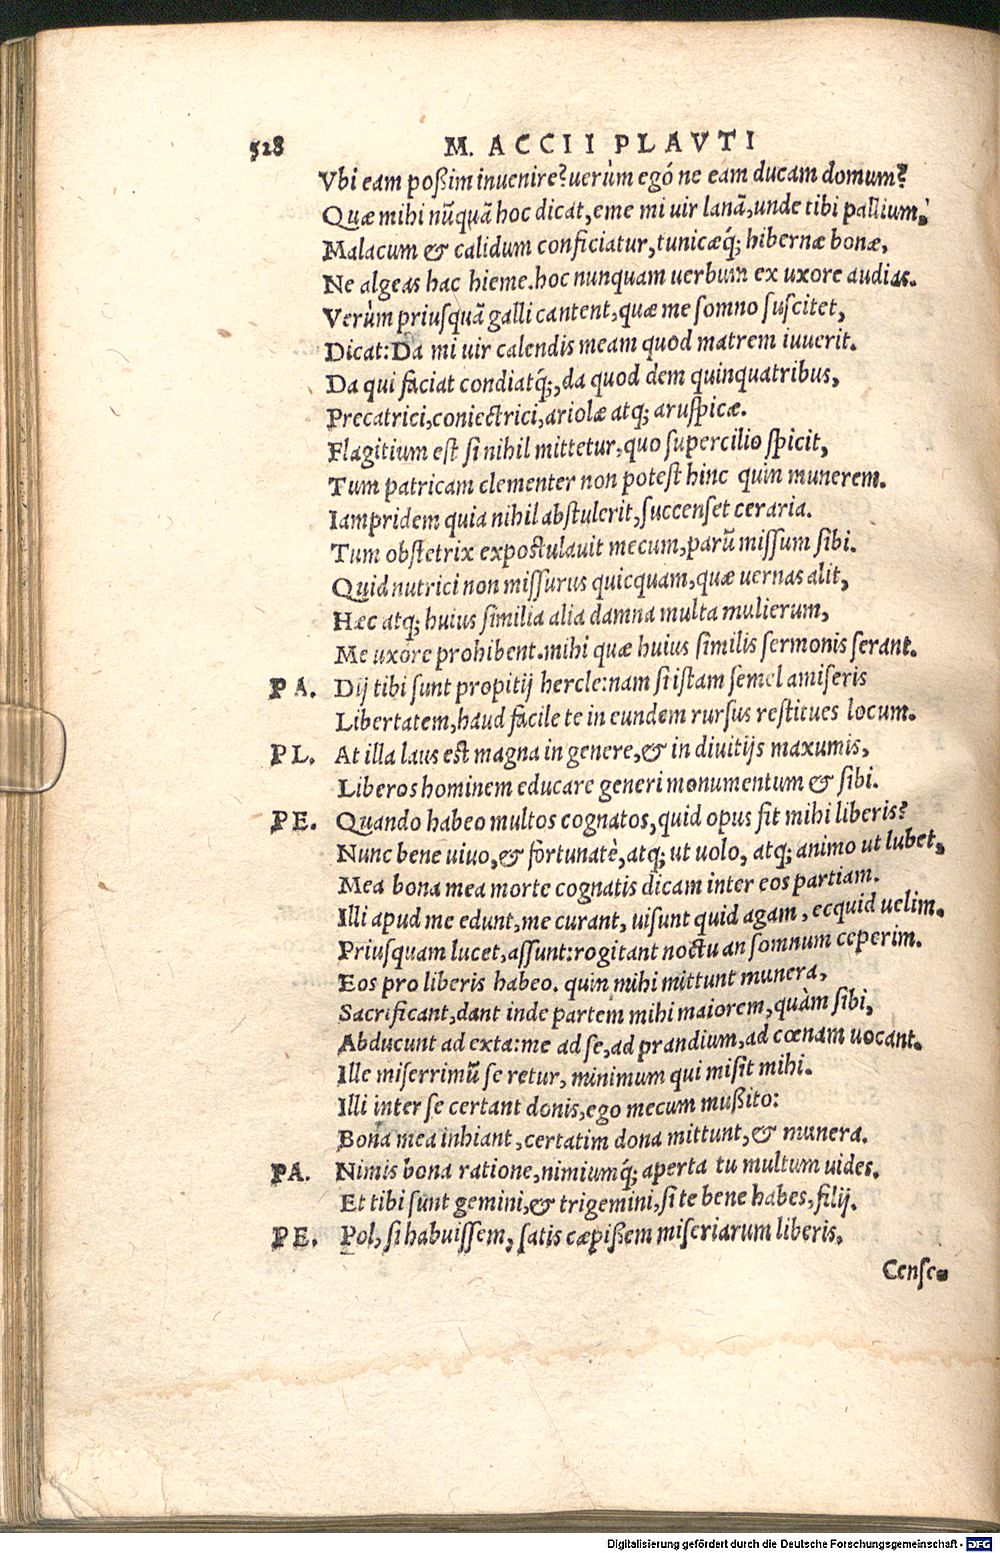 528 M. ACCII PLAVTI
Vbi eam poßim inuenire? uerùm egó ne eam ducam domum?
Quæ mihi nũquã hoc dicat, eme mi uir lanã, unde tibi pallium,
Malacum & calidum conficiatur, tunicæq́; hibernæ bonæ,
Ne algeas hac hieme. hoc nunquam uerbum ex uxore audias.
Verùm priusquã galli cantent, quæ me somno suscitet,
Dicat: Da mi uir calendis meam quod matrem iuuerit.
Da qui faciat condiatq́;, da quod dem quinquatribus,
Precatrici, coniectrici, ariolæ atq; aruspicæ.
Flagitium est si nihil mittetur, quo supercilio spicit,
Tum patricam clementer non potest hinc quin munerem.
Iampridem quia nihil abstulerit, succenset ceraria.
Tum obstetrix expostulauit mecum, parũ missum sibi.
Quid nutrici non missurus quicquam, quæ uernas alit,
Hæc atq; huius similia alia damna multa mulierum,
Me uxore prohibent. mihi quæ huius similis sermonis serant.
PA. Dij tibi sunt propitij hercle: nam si istam semel amiseris
Libertatem, haud facile te in eundem rursus restitues locum.
PL. At illa laus est magna in genere, & in diuitijs maxumis,
Liberos hominem educare generi monumentum & sibi.
PE. Quando habeo multos cognatos, quid opus sit mihi liberis?
Nunc bene uiuo, & fortunatè, atq; ut uolo, atq; animo ut lubet,
Mea bona mea morte cognatis dicam inter eos partiam.
Illi apud me edunt, me curant, uisunt quid agam, ecquid uelim.
Priusquam lucet, assunt: rogitant noctu an somnum ceperim.
Eos pro liberis habeo. quin mihi mittunt munera,
Sacrificant, dant inde partem mihi maiorem, quàm sibi,
Abducunt ad exta: me ad se, ad prandium, ad cœnam uocant.
Ille miserrimũ se retur, minimum qui misit mihi.
Illi inter se certant donis, ego mecum mußito:
Bona mea inhiant, certatim dona mittunt, & munera.
PA. Nimis bona ratione, nimiumq́; aperta tu multum uides.
Et tibi sunt gemini, & trigemini, si te bene habes, filij.
PE. Pol, si habuissem, satis cæpißem miseriarum liberis.
Cense-
Digitalisierung gefördert durch die Deutsche Forschungsgemeinschaft - DFG